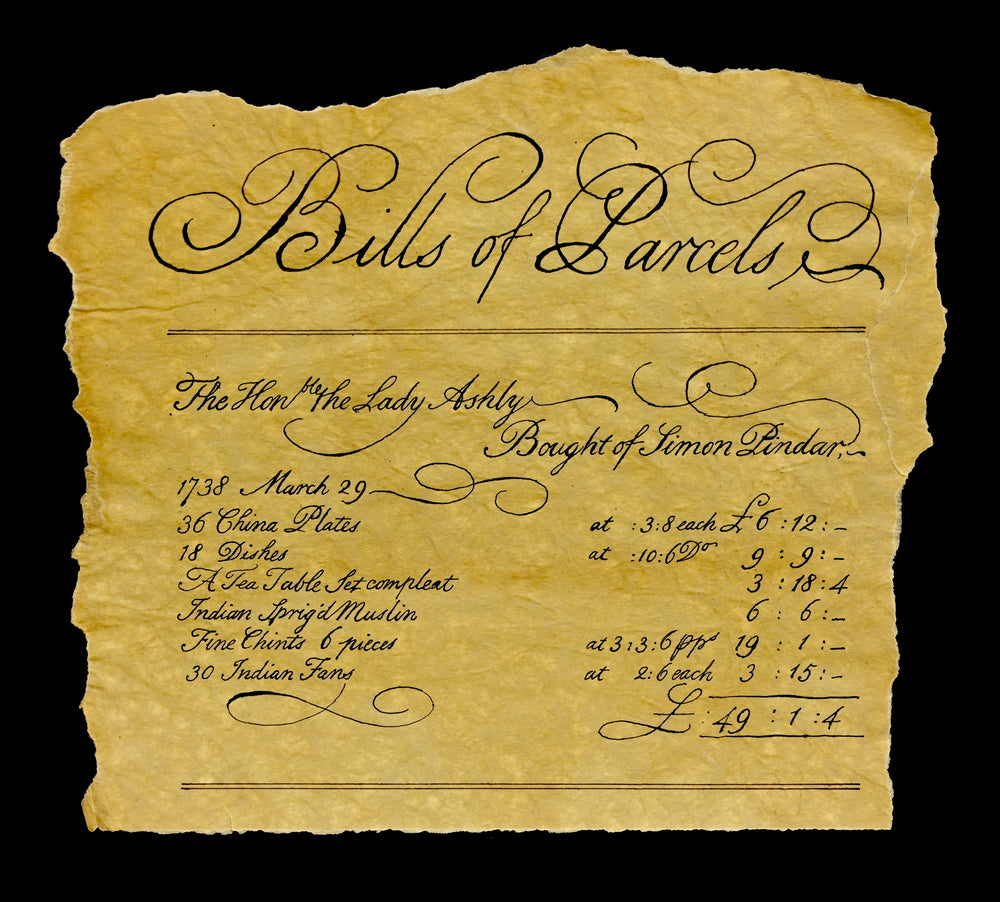 Bills of Parcels
The Hon ble the Lady Ashly
Bought of Simon Pindar,
1738 March 29
36 China Plates at :3:8 each £ 6 :12: –
18 Dishes at :10:6 Do 9 : 9: –
A Tea Table Set compleat 3 : 18 : 4
Indian Sprig'd Muslin 6 : 6: –
Fine Chints 6 pieces at 3:3:6 pps 19 : 1 : –
30 Indian Fans at 2:6 each 3 : 15: –
£ : 49 : 1 : 4